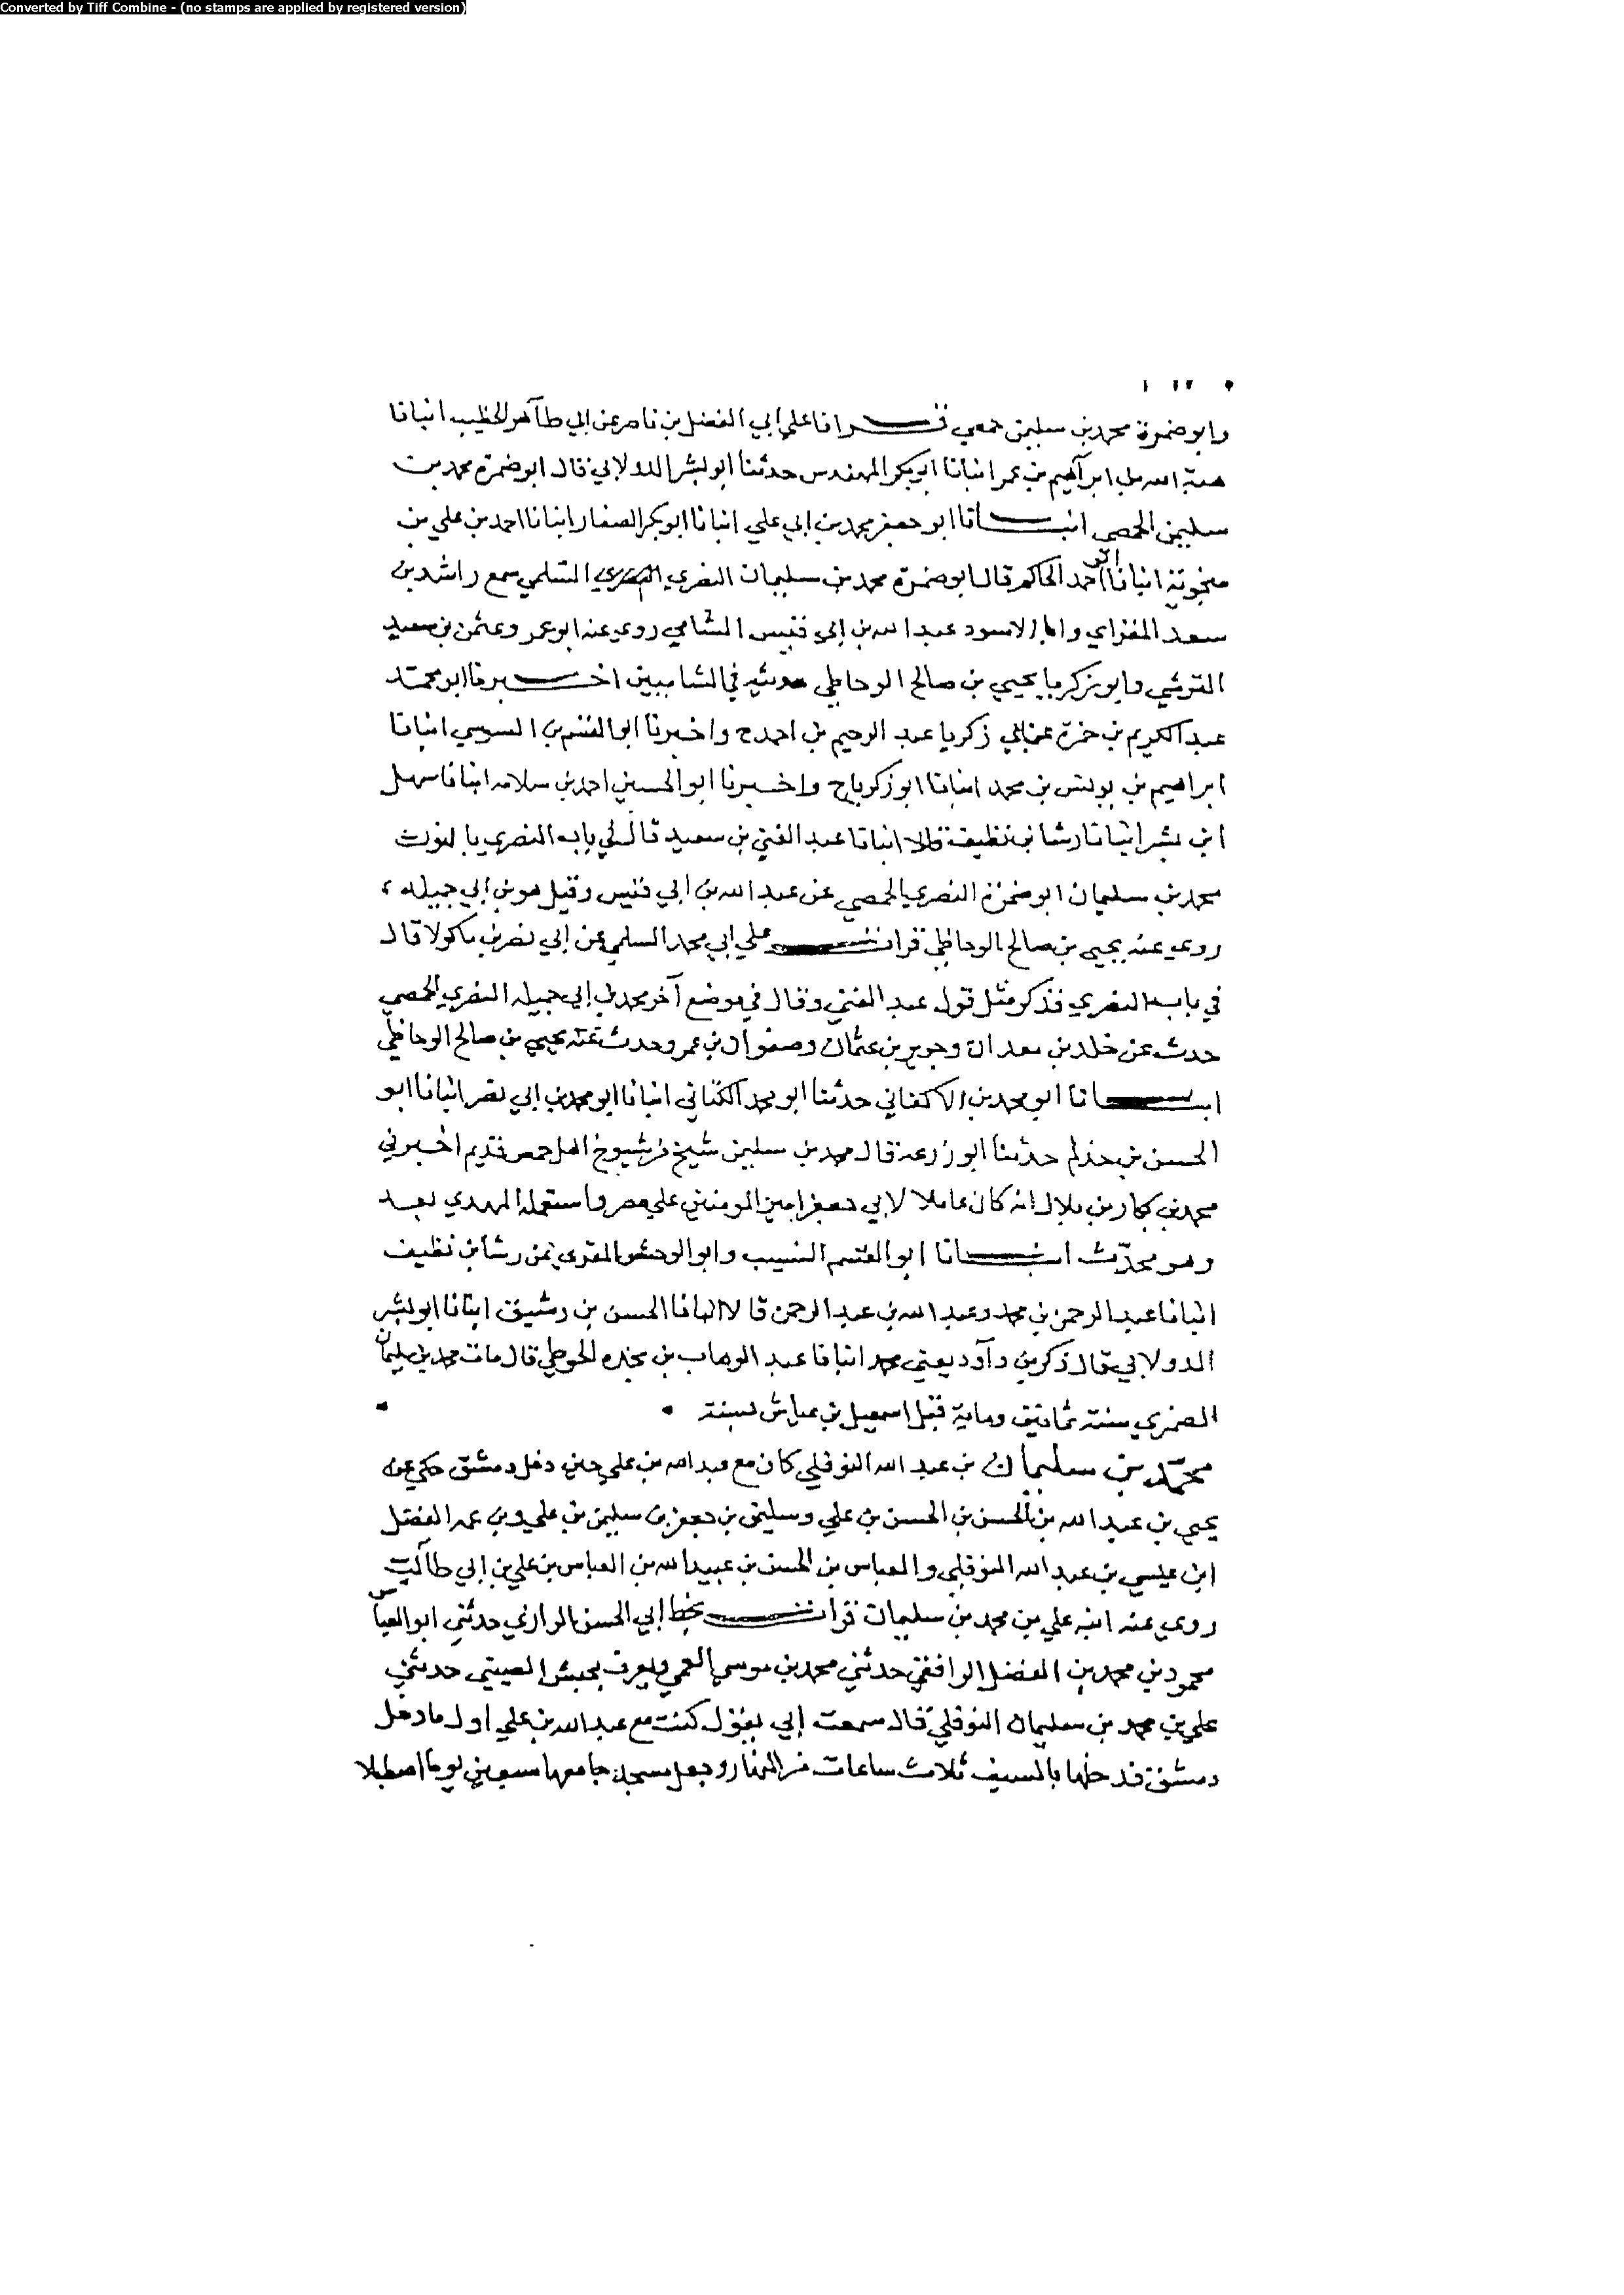 Converted by Tiff Combine - (no stamps are applied by registered version)
وابو ضمرة محمد بن سليمن حمصي قرانا علي ابي الفضل بن ناصر عن ابي طاهر الخطيب انبانا
هبة الله بن ابراهيم بن عمر انبانا ابو بكر المهندس حدثنا ابو بشر الدولابي قال ابو ضمرة محمد بن
سليمن الحمصي انبانا ابو جعفر محمد بن ابي علي انبانا ابو بكر الصفار انبانا احمد بن علي بن
منجويه انبانا ابو احمد الحاكم قال ابو ضمرة محمد بن سليمان النصري السلمي سمع راشد بن
سعد المقراي وابا الاسود عبد الله بن ابي قيس الشامي روى عنه ابو عمرو عثمن بن سعيد
القرشي وابو زكريا يحيى بن صالح الوحاظي حديثه في الشاميين اخبرنا ابو محمد
عبد الكريم بن حمزة عن ابي زكريا عبد الرحيم بن احمد ح واخبرنا ابو القسم بن السوسي انبانا
ابراهيم بن يونس بن محمد انبانا ابو زكريا ح واخبرنا ابو الحسين احمد بن سلامه انبانا سهل
ابن بشر انبانا رشا بن نظيف قالا انبانا عبد الغني بن سعيد قال في باب النصري بالنون
محمد بن سليمان ابو ضمرة النصري الحمصي عن عبد الله بن ابي قيس وقيل هو بن ابي جميله
روى عنه يحيى بن صالح الوحاظي قرات علي ابي محمد السلمي عن ابي نصر بن ماكولا قال
في باب النصري فذكر مثل قول عبد الغني وقال في موضع آخر محمد بن ابي جميله النصري الحمصي
حدث عن خلد بن معدان وجرير بن عثمان وصفوان بن عمرو حدث عنه يحيى بن صالح الوحاظي
انبانا ابو محمد بن الاكفاني حدثنا ابو محمد الكتاني انبانا ابو محمد بن ابي نصر انبانا ابو
الحسن بن حذلم حدثنا ابو زرعة قال محمد بن سليمن شيخ من شيوخ اهل حمص قديم اخبرني
محمد بن بكار بن بلال انه كان عاملا لابي جعفر امير المومنين علي مصر واستعمله المهدي بعد
وهو محدّث انبانا ابو القسم النسيب وابو الوحش المقري عن رشا بن نظيف
انبانا عبد الرحمن بن محمد وعبد الله بن عبد الرحمن قالا انبانا الحسن بن رشيق انبانا ابو بشر
الدولابي قال ذكر بن داود يعني محمد انبانا عبد الوهاب بن نجده الحوطي قال مات محمد بن سليمان
سنة ثمانين وماية قبل اسمعيل بن عياش بسنة
محمد بن سليمان بن عبد الله النوفلي كان مع عبد الله بن علي حين دخل دمشق حكى عن
يحيى بن عبد الله بن الحسن بن الحسن بن علي وسليمن بن جعفر بن سليمن بن علي وبن عمه الفضل
ابن عيسى بن عبد الله النوفلي والعباس بن الحسن بن عبيد الله بن العباس بن علي بن ابي طالب
روى عنه ابنه علي بن محمد بن سليمان قرات بخط ابي الحسن الرازي حدثني ابو العباس
محمود بن محمد بن الفضل الرافقي حدثني محمد بن موسى العمي ويعرف بحبش الصيني حدثني
علي بن محمد بن سليمان النوفلي قال سمعت ابي يقول كنت مع عبد الله بن علي اول ما دخل
دمشق فدخلها بالسيف ثلاث ساعات من النهار وجعل مسجد جامعها سبعين يوما اصطبلا